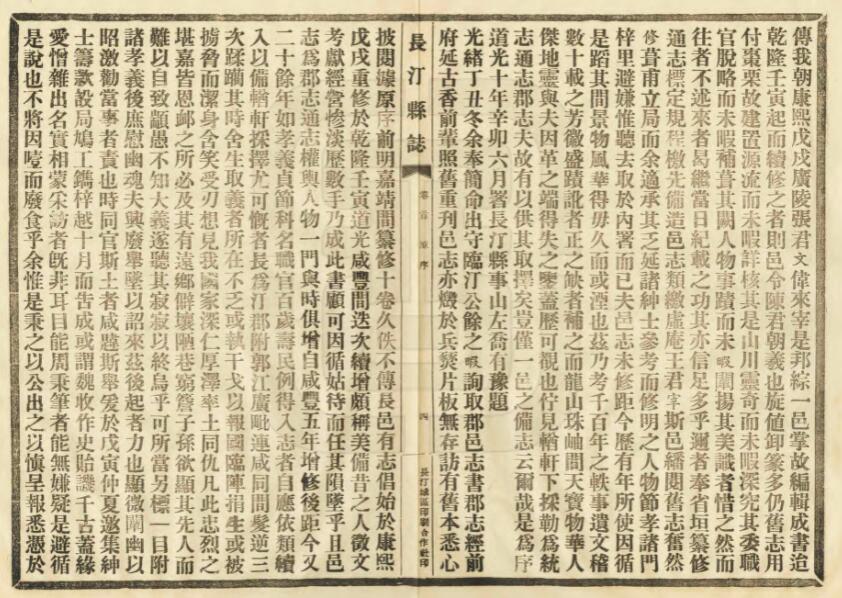 傳我朝康熙戊戌廣陵張君文偉來宰是邦綜一邑掌故編輯成書迨
乾隆壬寅起而續修之者則邑令陳君朝羲也旋値卸篆多仍舊志用
付棗栗故建置源流而未暇詳核其是山川靈奇而未暇深究其委職
官脫略而未暇補葺其闕人物事蹟而未暇闡揚其美識者惜之然而
往者不述來者曷繼當日紀載之功其亦信足多乎邇者奉省垣纂修
通志標定規程檄先備造邑志類繳虛庵王君宰斯邑繙閱舊志奮然
修葺甫立局而余適承其乏延諸紳士參考而修明之人物節孝諸門
梓里避嫌惟聽去取於內署而已夫邑志未修距今歷有年所使因循
是蹈其間景物風華得毋久而或湮也茲乃考千百年之軼事遺文稽
數十載之芳徽盛蹟訛者正之缺者補之而龍山珠岫間天寶物華人
傑地靈與夫因革之端得失之鑒蓋歷歷可觀也佇見輶軒下採勒為統
志通志郡志夫故有以供其取擇矣豈僅一邑之備志云爾哉是為序
道光十年辛卯六月署長汀縣事山左喬有豫題
光緒丁丑冬余奉簡命出守臨汀公餘之暇詢取郡邑志書郡志經前
府延古香前輩照舊重刊邑志亦燬於兵燹片板無存訪有舊本悉心
長汀縣誌
卷首 原序
四
長汀城區印刷合作社印
披閱據原序前明嘉靖間纂修十卷久佚不傳長邑有志倡始於康熙
戊戌重修於乾隆壬寅道光咸豐間迭次續增頗稱美備昔之人徵文
考獻經營慘淡歷數手乃成此書顧可因循姑待而任其隕墜乎且邑
志為郡志通志權輿人物一門與時俱增自咸豐五年增修後距今又
二十餘年如孝義貞節科名職官百歲壽民例得入志者自應依類續
入以備輶軒採擇尤可慨者長為汀郡附郭江廣毗連咸同間髮逆三
次蹂躪其時舍生取義者所在不乏或執干戈以報國臨陣捐生或被
擄脅而潔身含笑受刃想見我國家深仁厚澤率土同仇凡此忠烈之
堪嘉皆恩卹之所必及其有遠鄉僻壤陋巷窮簷子孫欲顯其先人而
難以自致顓愚不知大義遂聽其寂寂以終烏乎可所當另標一目附
諸孝義後庶慰幽魂夫興廢舉墜以詔來茲後起者力也顯微闡幽以
昭激勸當事者責也時同官斯土者咸韙斯舉爰於戊寅仲夏邀集紳
士籌款設局鳩工鐫梓越十月而告成或謂魏收作史貽譏千古蓋緣
愛憎雜出名實相蒙采訪者旣非耳目能周秉筆者能無嫌疑是避循
是說也不將因噎而廢食乎余惟是秉之以公出之以愼呈報悉憑於